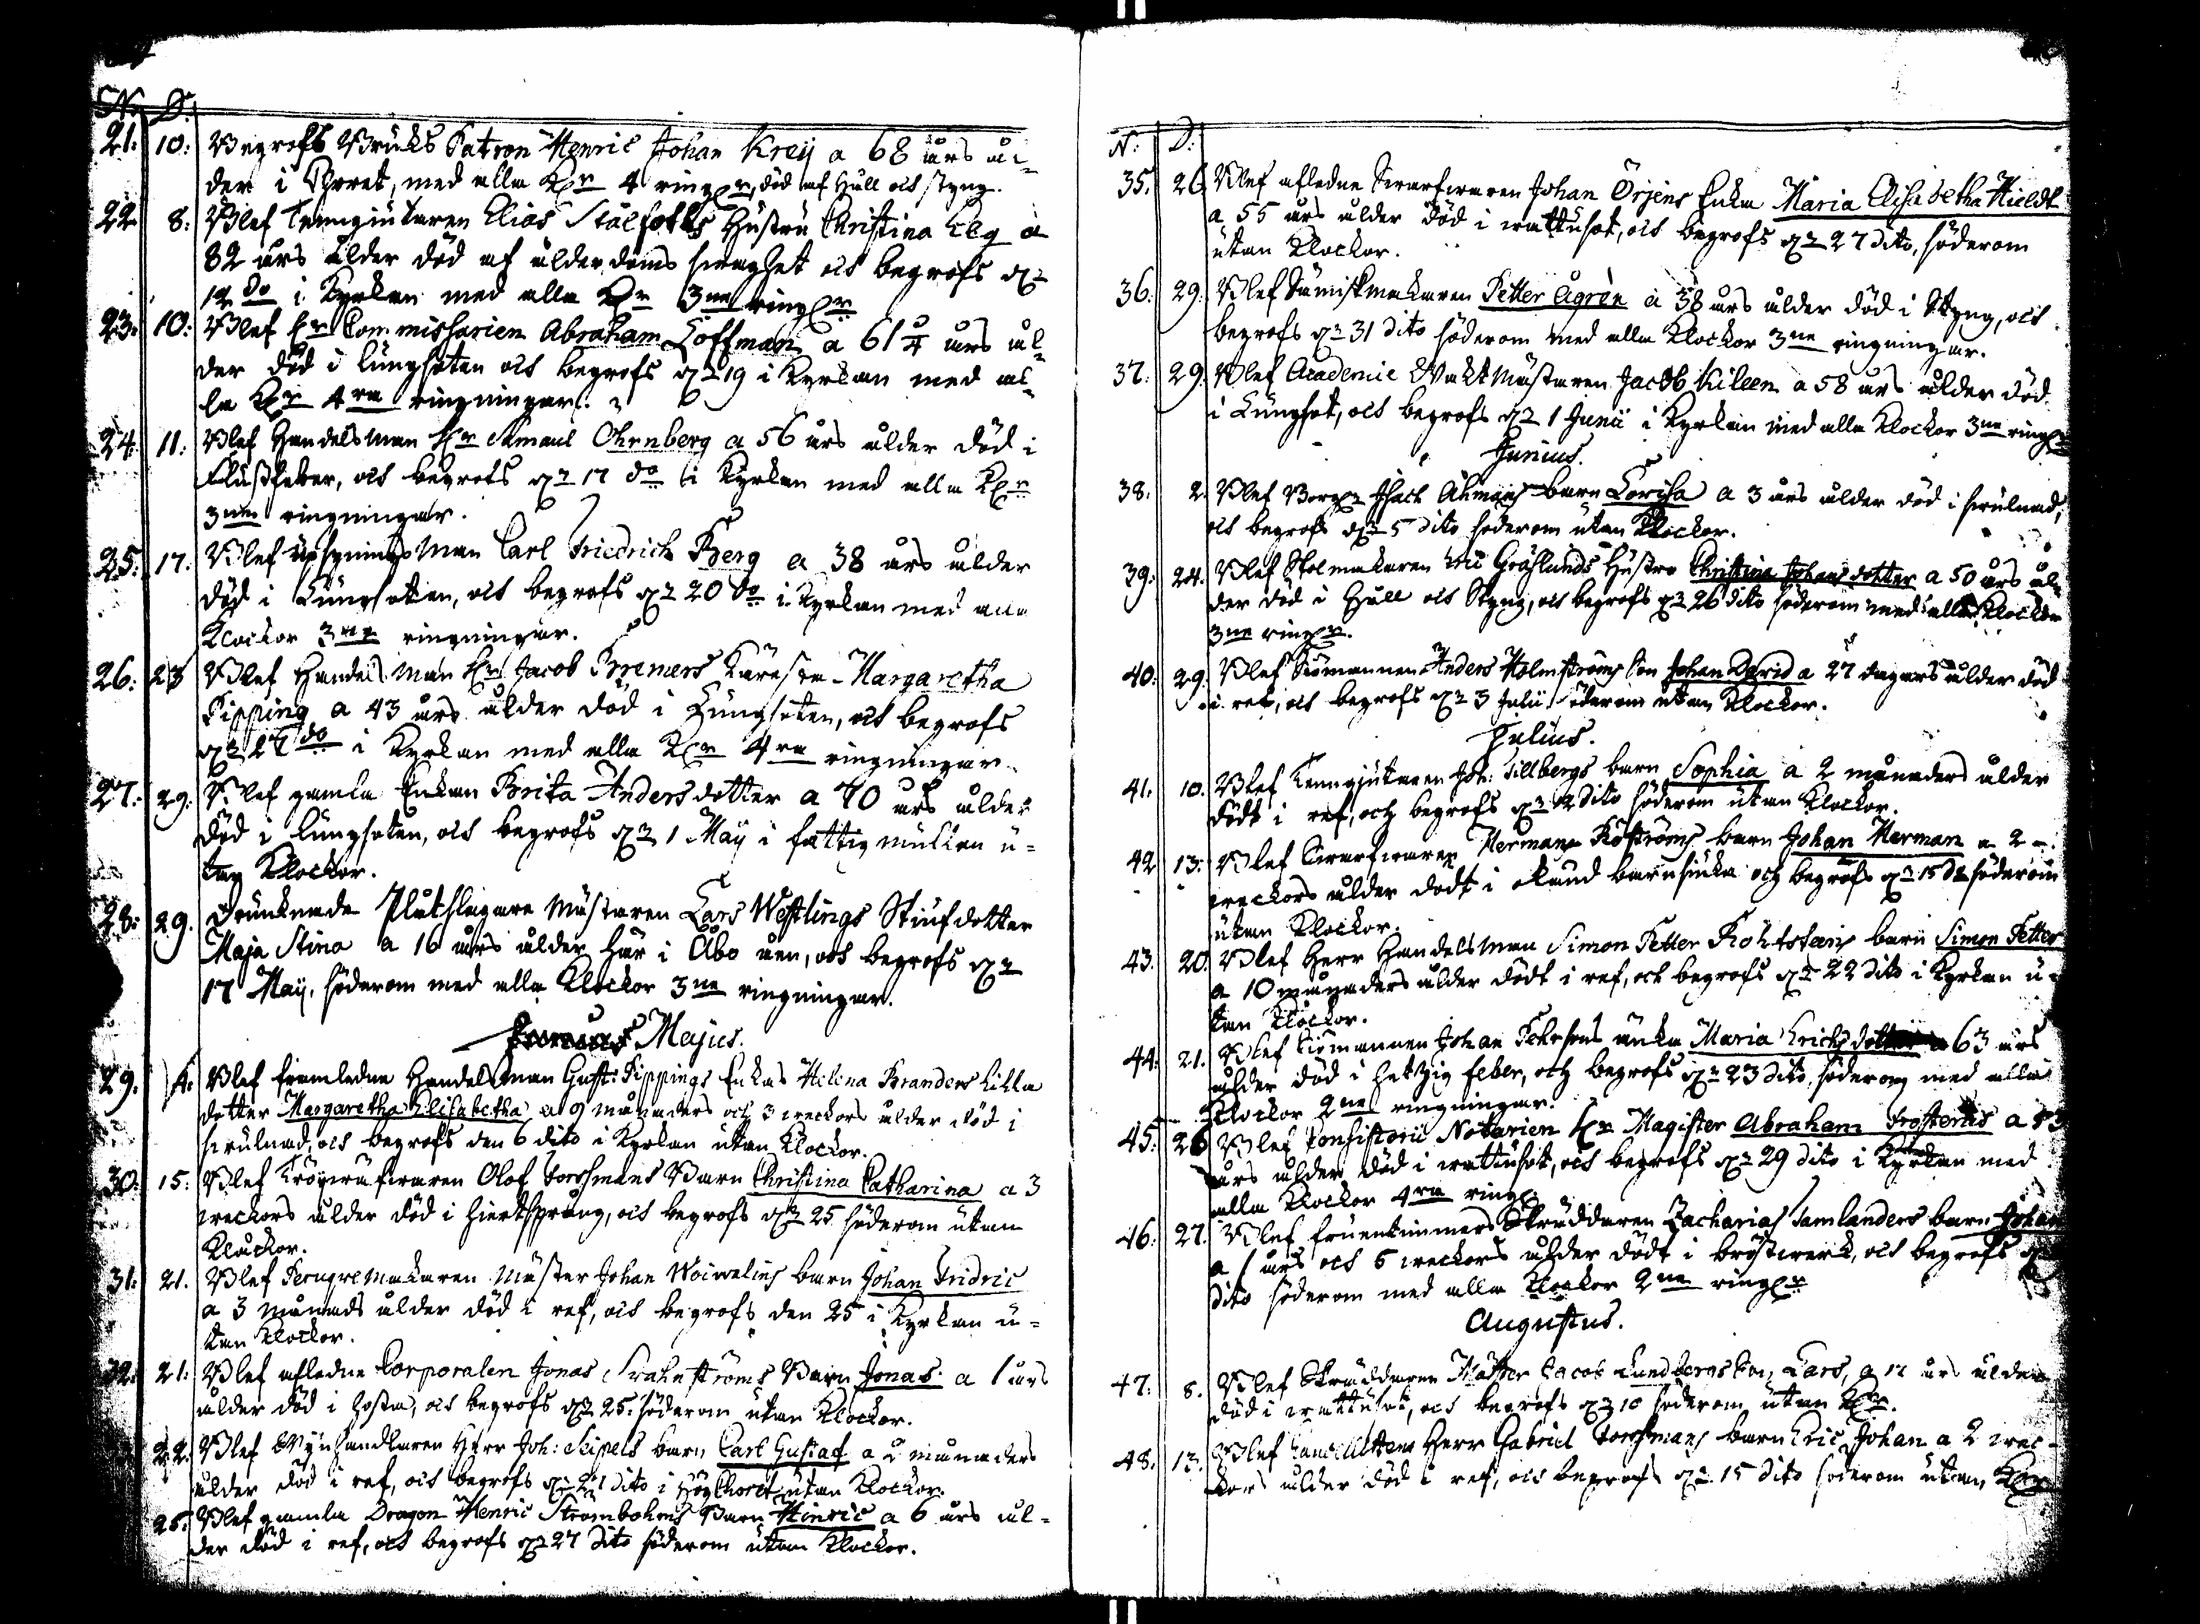 N. D.
21. 10: Begrofs Bruks Patron Henric Johan Kreij a 68 års ål-
der i Choret, med alla Kr 4 ring:r, död af Håll och styng.
22. 8: Blef Tenngiutaren Elias Stålfots Hustru Christina Elg a
82 års ålder död af ålderdoms swaghet och begrofs d:n
12 do i Kyrkan med alla Kr 3ne ring:r
23. 10: Blef Hr Commissarien Abraham Coffman a 61 år ål-
der död i lungsoten och begrofs d:n 19 i Kyrkan med al-
la Kr 4ra ringningar.
24. 11: Blef Handelsman Hr Samuel Öhrnberg a 56 års ålder död i
Flussfeber, och begrofs d:n 17 do i Kyrkan med alla Kr
3ne ringningar.
25. 17: Blef upsyningsman Carl Friedrich Berg a 38 års ålder
död i Lungsoten, och begrofs d:n 20 do i Kyrkan med alla
Klockor 3ne ringningar.
26. 23 Blef Handelsman Hr Jacob Bremers Käresta Margaretha
Pipping a 43 års ålder död i Lungsoten, och begrofs
d:n 27 do i Kyrkan med alla Kr 4ra ringningar.
27. 29. Blef gamla Enkan Brita Andersdotter a 70 års ålder
död i lungsoten, och begrofs d:n 1 Maij i fattig mullen u-
tan Klockor.
28. 29. Drunknade Plåtslagare Mästaren Lars Westlings Stiufdotter
Maja Stina a 16 års ålder här i Åbo åen, och begrofs d:n
17 Maij, söderom med alla Klockor 3ne ringningar.
Majus.
29. 4. Blef framledne Handelsman Gust: Pippings Enkas Helena Branders lilla
dotter Margaretha Elisabetha a 9 månaders och 3 weckors ålder död i
swulnad, och begrofs den 6 dito i Kyrkan utan Klockor.
30. 15: Blef Olof Forssmans Barn Christina Catharina a 3
weckors ålder död i hiertsprång, och begrofs d:n 25 söderom utan
Klockor.
31. 21. Blef Peruqvemakaren Mäster Johan Woivalins barn Johan Fridric
a 3 månads ålder död i ref, och begrofs den 25 i Kyrkan u-
tan Klockor.
32. 21. Blef afledne Corporalen Jonas Swahnströms Barn Jonas a 1 års
ålder död i hosta, och begrofs d:n 25. söderom utan Klockor.
22. Blef Wijnhandlaren Herr Joh: Seipels barn Carl Gustaf a 2 månaders
ålder död i ref, och begrofs d:n 21 dito i Hög Choret utan Klockor.
25. Blef gamla Dragon Henric Strömbohms Barn Hinric a 6 års ål-
der död i ref, och begrofs d:n 27 dito söderom utan Klockor.
N: D:
35. 26. Blef afledne Swarfwaren Johan Örjens Enka Maria Elisabetha Hieldt
a 55 års ålder död i wattusot, och begrofs d:n 27 dito, söderom
utan Klockor.
36. 29. Blef Sämiskmakaren Petter Ågrèn a 38 års ålder död i Styng, och
begrofs d:n 31 dito söderom med alla Klockor 3ne ringningar.
37. 29. Blef Academie Wakt Mästaren Jacob Kileen a 58 års ålder död
i Lungsot, och begrofs d:n 1 Junii i Kyrkan med alla Klockor 3ne ring:r
Junius.
38. 2. Blef Borg:n Isack Åhmans barn Lovisa a 3 års ålder död i swulnad,
och begrofs d:n 5 dito söderom utan Klockor.
39. 24. Blef Stolmakaren Eric Gräslunds Hustro Christina Johansdotter a 50 års ål-
der död i Håll och Styng, och begrofs d:n 26 dito söderom med alla Klockor
3ne ring:r.
40. 29. Blef Siömannen Anders Holmströms Son Johan David a 27 dagars ålder död
i ref, och begrofs d:n 3 Julii söderom utan Klockor.
Julius.
41. 10. Blef Tenngjutaren Joh: Tillbergs barn Sophia a 2 månaders ålder
dödt i ref, och begrofs d:n 12 dito söderom utan Klockor.
42 13. Blef Swarfwaren Herman Roströms barn Johan Herman a 2
weckors ålder dödt i okänd barnsiuka och begrofs d:n 15 do söderom
utan Klockor.
43. 20. Blef Herr Handelsman Simon Petter barn Simon Petter
a 10 månaders ålder dödt i ref, och begrofs d:n 22 dito i Kyrkan u-
tan Klockor.
44. 21. Blef Siömannen Johan Pehrsons änka Maria Erichsdotter a 63 års
ålder död i hetzig feber, och begrofs d:n 23 dito söderom med alla
Klockor 2ne ringningar.
45. 26 Blef Consistorii Notarien Hr Magister Abraham Frosterus a 53
års ålder död i wattusot, och begrofs d:n 29 dito i Kyrkan med
alla Klockor 4ra ring:r
46. 27. Blef fruentimmers Skräddaren Zacharias Samlanders barn Johan
a 1 års och 6 weckors ålder dödt i bröstwerk, och begrofs
dito söderom med alla Klockor 2ne ring:r
Augustus.
47. 8. Blef Skräddaren Mäster Jacob Lundbergs Son Lars, a 12 års ålder
död i wattusot, och begrofs d:n 10 söderom utan Kr.
48. 13. Blef Herr Gabriel Forssmans barn Eric Johan a 2 wec-
kors ålder död i ref, och begrofs d:n 15 dito söderom utan Kr